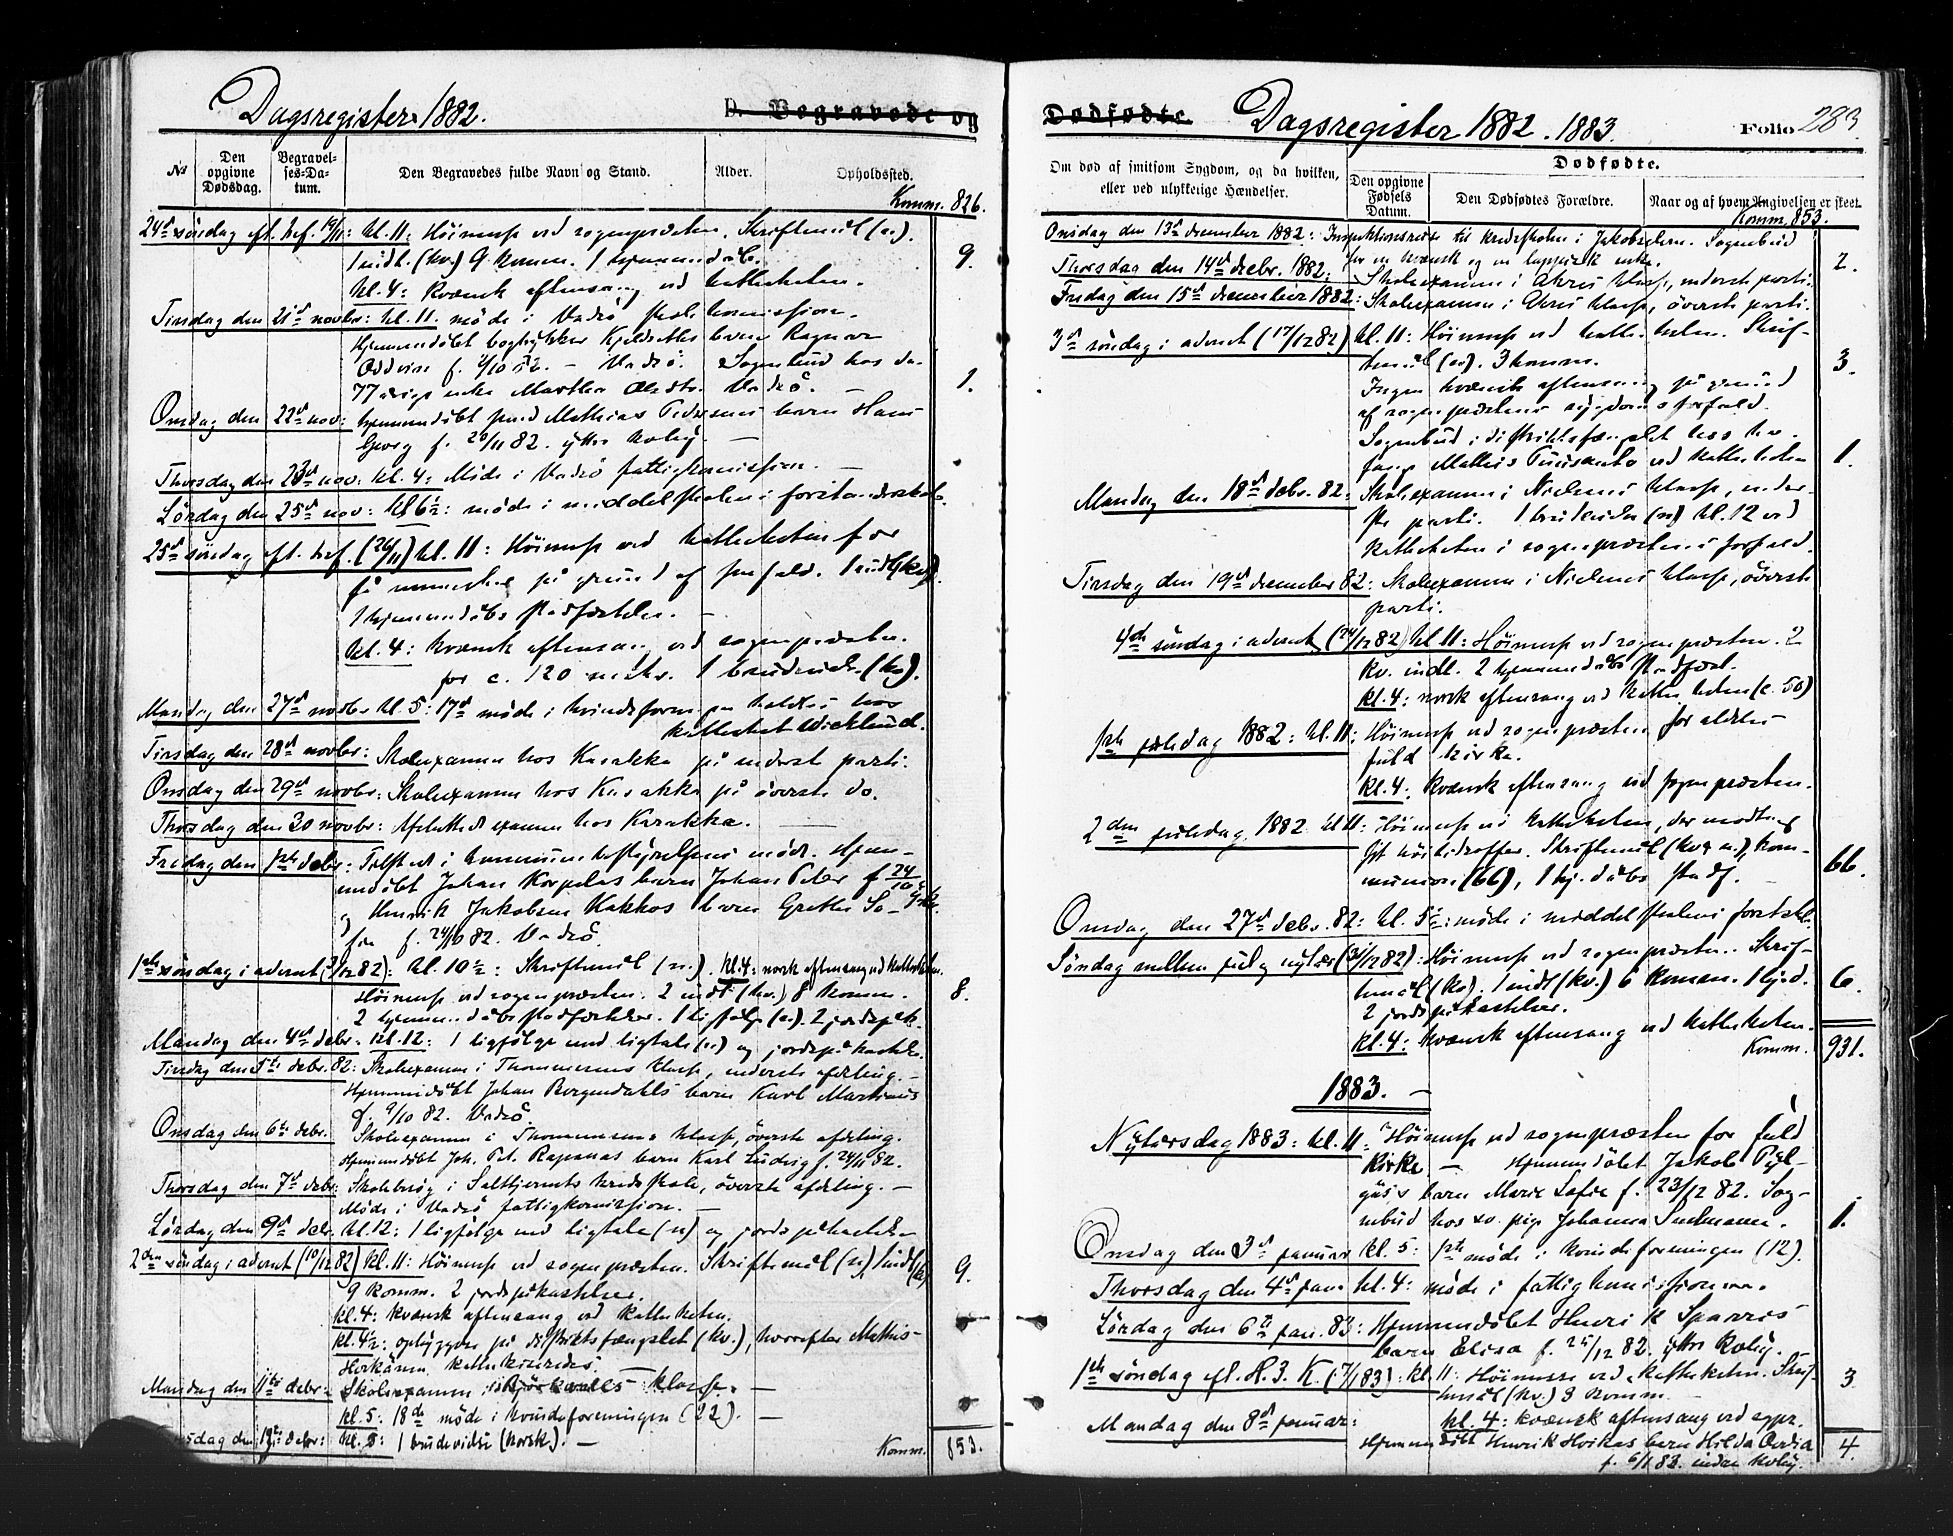 Dagsregister 1882.
D. Begravede og
No
Den opgivne Dødsdag.
Begravelses-Datum.
Den Begravedes fulde Navn og Stand.
Alder.
Opholdssted.
Komm. 826.
24de söndag eft. tref. 19/11: kl. 11: Höimesse ved sogneprästen. Skriftemål (n.).
1 indl. (kv.) 9 komm. 1 hjemmedåb.
9.
kl. 4: Kvænsk aftensang ved katekheten.
Tirsdag den 21de novbr: kl. 11. möde i Vadsö skolekomission.
Hjemmedöbt bogtrykker Kjeldseths barn Ragnar
Oddvin f. /10 82. – Vadsö. Sognebud hos den
77 årige enke Martha Vadsö.
1.
Onsdag den 22de nov: hjemmedöbt Mathias Pedersens barn Hans
Georg f. 20/11 82. yttre kvby. –
Thorsdag den 23de nov: kl. 4: Möde i Vadsö fattigkomission. –
Lördag den 25de nov: kl 6½: möde i middelskolens forstanderskab.
25de söndag eft. tref. (26/11) kl. 11: Höimesse ved katekheten for
få mennesker på grund af snefald. 1 indl. (kv).
1 hjemmedåbs stadfæstelse. –
kl. 4: kvænsk aftensang ved sogneprästen.
for c. 120 mskr. 1 brudevielse (kv).
Mandag den 27de novbr kl. 5: 17de möde i kvindeforeningen holdtes hos
katekhet Wicklund.
Tirsdag den 28de novbr: Skoleexamen hos Karakka på nederste parti.
Onsdag den 29de novbr: Skoleexamen hos Karakka på överste do.
Thorsdag den 30 novbr: Afsluttedes examen hos Karakka. –
Fredag den 1ste debr: Tilstede i kommunebestyrelsens möde. Hjem-
medöbt Johan Korpelas barn Johan Peter f. 24/10
og Henrik Jakobsen Kakkos barn Grethe So-
fia f. 24/10 82. Vadsö.
1ste söndag i advent (3/12 82): kl. 10½: Skriftemål (n.). kl. 4: norsk aftensang ved katekheten.
Höimesse ved sogneprästen. 2 indl (kv.) 8 komm.
8.
2 hjemmedåbs stadfæstelser. 1 ligfölge (n). 2 jordspåk.
Mandag den 4de debr. kl. 12: 1 ligfölge med ligtale (n) og jordspåkastelse.
Tirsdag den 5te debr. 82: Skoleexamen i Thommesens klasse, nederste afdeling. –
Hjemmedöbt Johan Borgendahls barn Karl Martinus
f. 9/10 82. Vadsö.
Onsdag den 6te debr. Skoleexamen i Thommesens klasse, överste afdeling.
Hjemmedöbt Joh. Pet. Rapanas barn Karl Ludvig f. 24/11 82.
Thorsdag den 7de debr: Skolebesög i Salthjernets kredsskole, överste afdeling. –
Möde i Vadsö fattigkomission. –
Lördag den 9de debr. kl. 12: 1 ligfölge med ligtale (n) og jordspåkastelse
2den söndag i advent (10/12 82) kl. 11: Höimesse ved sogneprästen. Skriftemål (n), 1 indl (kv)
9 komm. 2 jordspåkastelser.
9.
kl. 4: kvænsk aftensang ved katekheten.
kl. 4½: opbyggelse på distriktsfængslet (kv.), hvorefter Mathis-
katekiseredes.
Mandag den 11te debr: Skoleexamen i Björkvalls klasse. –
kl. 5: 18de möde i kvindeforeningen (22). –
Tirsdag den 12te debr: kl. 5: 1 brudevielse (norsk). –
Komm. 853.
Dødfødte.
Dagsregister 1882. 1883.
Folio 283
Om død af smitsom Sygdom, og da hvilken, eller ved ulykkelige Hændelser.
Dødfødte.
Den opgivne Fødsels Datum.
Den Dødfødtes Forældre.
Naar og af hvem Angivelsen er skeet.
Komm. 853.
Onsdag den 13de december 1882: Inspektionsreise til kredsskolen i Jakobselven. Sognebud
for en kvænsk og en lappisk enke.
2.
Thorsdag den 14de decbr. 1882: Skoleexamen i Akres klasse, nederste parti.
Fredag den 15de december 1882: Skoleexamen i Akres klasse, överste parti.
3de söndag i advent (17/12 82) kl. 11: Höimesse ved katekheten. Skrif-
temål (n). 3 komm.
3.
Ingen kvænsk aftensang på grund
af sogneprästens sygdomsforfald.
Sognebud i distriktsfængslet hos kv.
fange Mathis ved katekheten
1.
Mandag den 18de debr. 82: Skoleexamen i Nielsens klasse, neder-
ste parti. 1 brudevielse (n) kl. 12 ved
katekheten i sogneprästens forfald.
Tirsdag den 19de december 82: Skoleexamen i Nielsens klasse, överste
parti.
4de söndag i advent (24/12 82) kl 11: Höimesse ved sogneprästen. 2
kv. indl. 2 hjemmedåbs stadfæst.
kl. 4: norsk aftensang ved katekheten (c. 50)
1ste juledag 1882: kl. 11: Höimesse ved sogneprästen for aldeles
fuld kirke.
kl. 4: Kvænsk aftensang ved sogneprästen.
2den juledag 1882 kl 11: Höimesse ved katekheten, der modtog
sit höitidsoffer. Skriftemål (kv & n.), kom-
munion (66), 1 hj. dåbs stadf. –
66.
Onsdag den 27de debr. 82: kl. 5½: möde i middelskolens forstskb.
Söndag mellem jul og nytår (31/12 82): Höimesse ved sogneprästen. Skrif-
temål (kv). 1 indl (kv.) 6 komm. 1 hj. d.
6.
2 jordspåkastelser.
kl. 4: kvænsk aftensang ved katekheten.
Komm. 931.
1883. –
Nytårsdag 1883: kl. 11: Höimesse ved sogneprästen for fuld
kirke – Hjemmedöbt Jakob
barn Marie Sofie f. 23/12 82. Sog-
nebud hos sv. pige Johanna
1.
Onsdag den 3de januar kl. 5: 1ste möde i kvindeforeningen (12).
Thorsdag den 4de jan. kl. 4: möde i fattigkomissionen.
Lördag den 6te jan. 83: Hjemmedöbt Henrik Sparris
barn Elisa f. 25/12 82. yttre kvby.
1ste söndag ef. H. 3. K. (7/1 83). kl 11: Höimesse ved katekheten. Skrif-
temål (kv.) 3 komm. –
3
kl. 4: kvænsk aftensang ved sognpr.
Mandag den 8de januar: Hjemmedöbt Henrik barn Hilda
f. 6/1 83. indre kvby.
4.